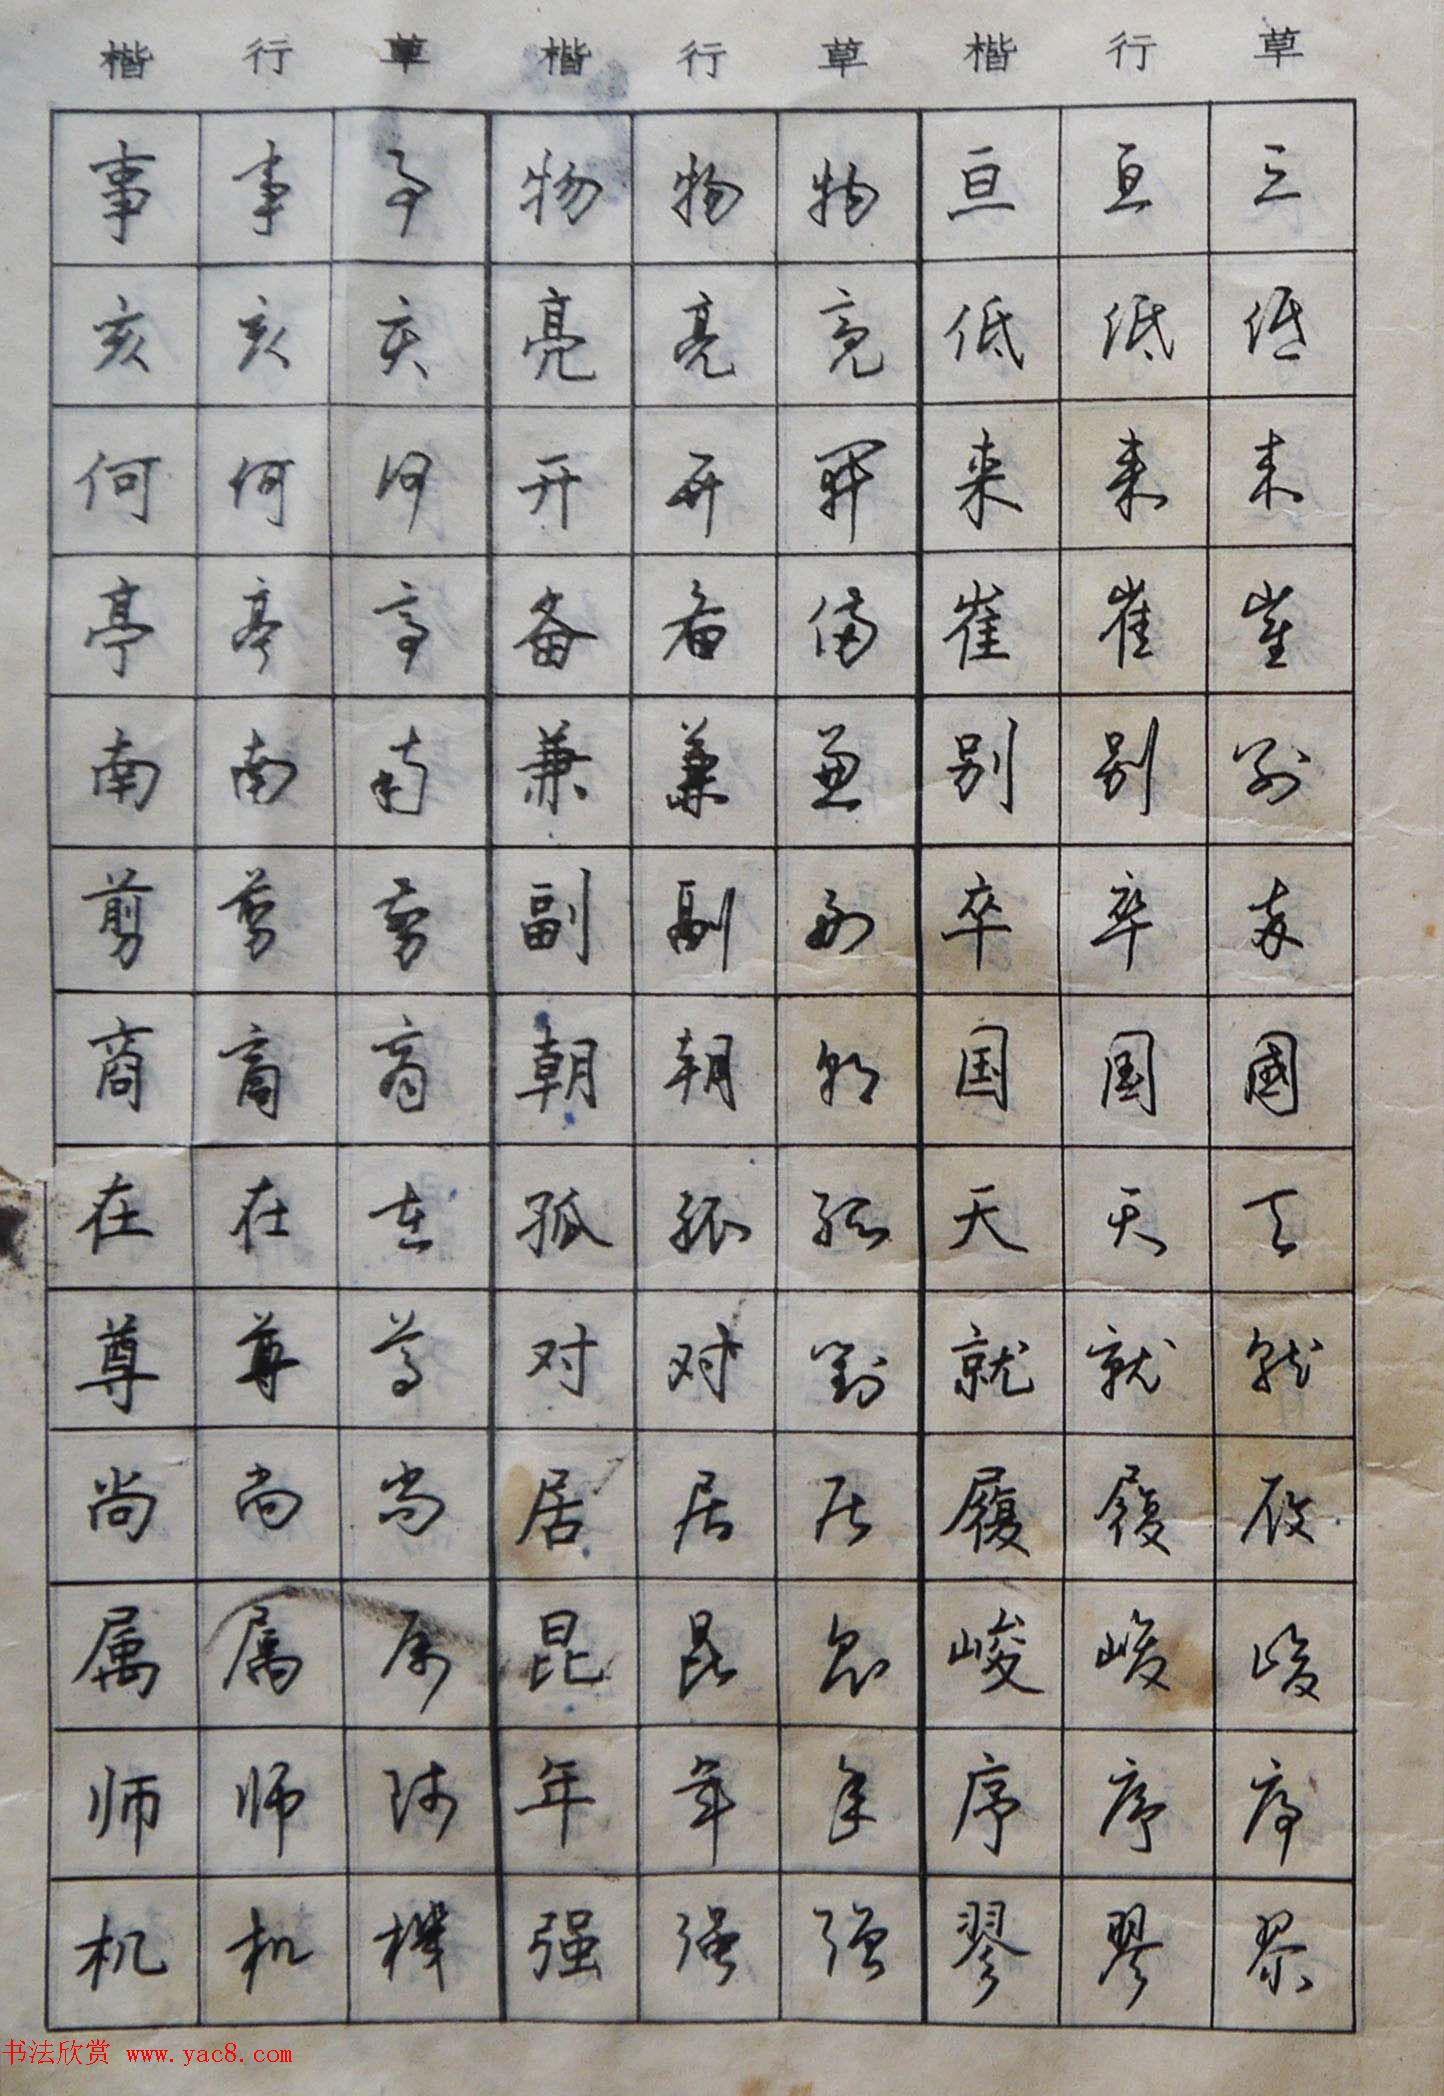 楷 行 草 楷 行 草 楷 行 草
事 事 事 物 物 物 亘 亘 亘
亥 亥 亥 亮 亮 亮 低 低 低
何 何 何 开 开 開 来 来 来
亭 亭 亭 备 备 備 崔 崔 崔
南 南 南 兼 兼 兼 别 别 别
剪 剪 剪 副 副 副 卒 卒 卒
商 商 商 朝 朝 朝 国 国 國
在 在 在 孤 孤 孤 天 天 天
尊 尊 尊 对 对 對 就 就 就
尚 尚 尚 居 居 居 履 履 履
属 属 属 昆 昆 昆 峻 峻 峻
师 师 師 年 年 年 序 序 序
机 机 機 强 强 强 翏 翏 翏
书法欣赏 www.yac8.com